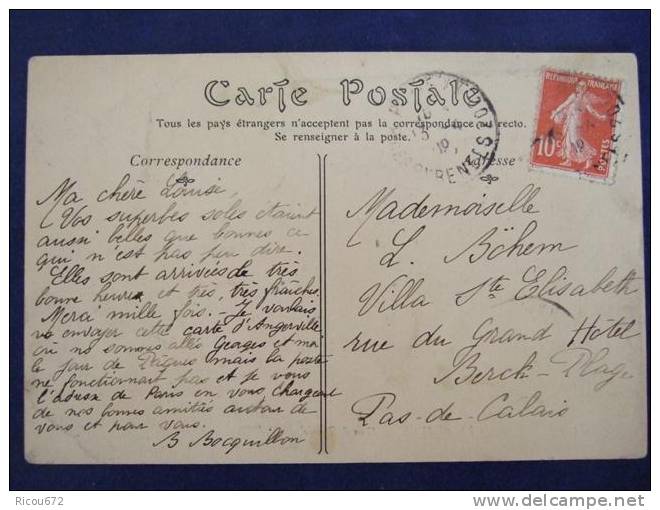 Carte Postale
Tous les pays étrangers n'acceptent pas la correspondance au recto.
Se renseigner à la poste.
Correspondance
Ma chère Louise,
Vos superbes soles étaient
aussi belles que bonnes ce
qui n'est pas peu dire.
Elles sont arrivées de très
bonne heure et très, très fraîches
Merci mille fois. – Je voulais
vs envoyer cette carte d'Angerville
où ns sommes allés Georges et moi
le jour de Pâques mais la poste
ne fonctionnait pas et je vous
l'adresse de Paris en vous chargeant
de nos bonnes amitiés autour de
vous et pour vous.
B Bocquillon
Adresse
Mademoiselle
L. Böhem
Villa Ste Elisabeth
rue du Grand Hôtel
Berck-Plage
Pas-de-Calais
REPUBLIQUE FRANÇAISE
10c
POSTES
Ricou672
delcampe.net